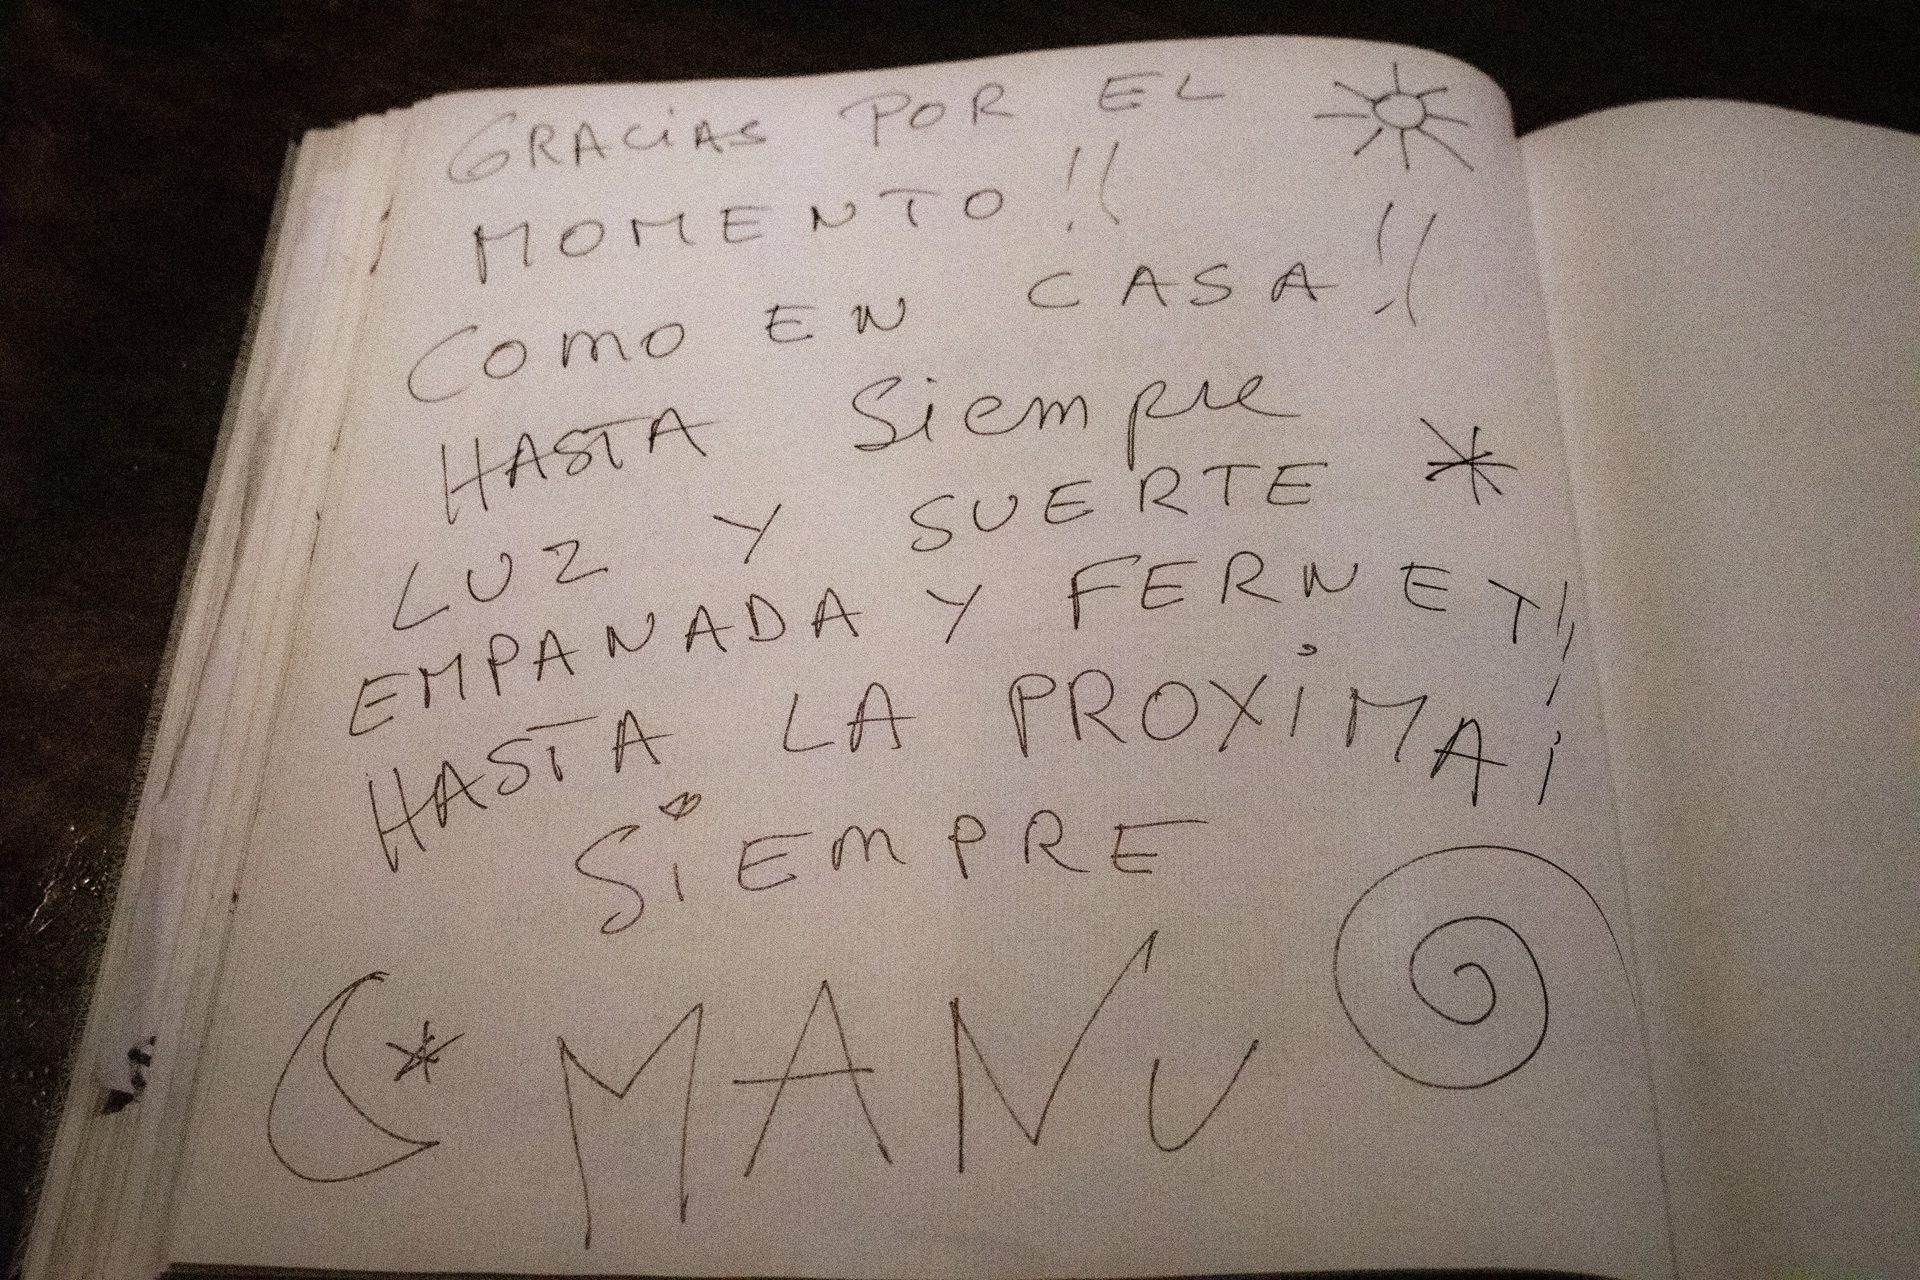 GRACiAS POR EL
MOMENTO!!
COMO EN CASA!!
HASTA Siempre
LUZ Y SUERTE
EMPANADA Y FERNET!!
HASTA LA PROXiMA¡
SiEMPRE
MANU